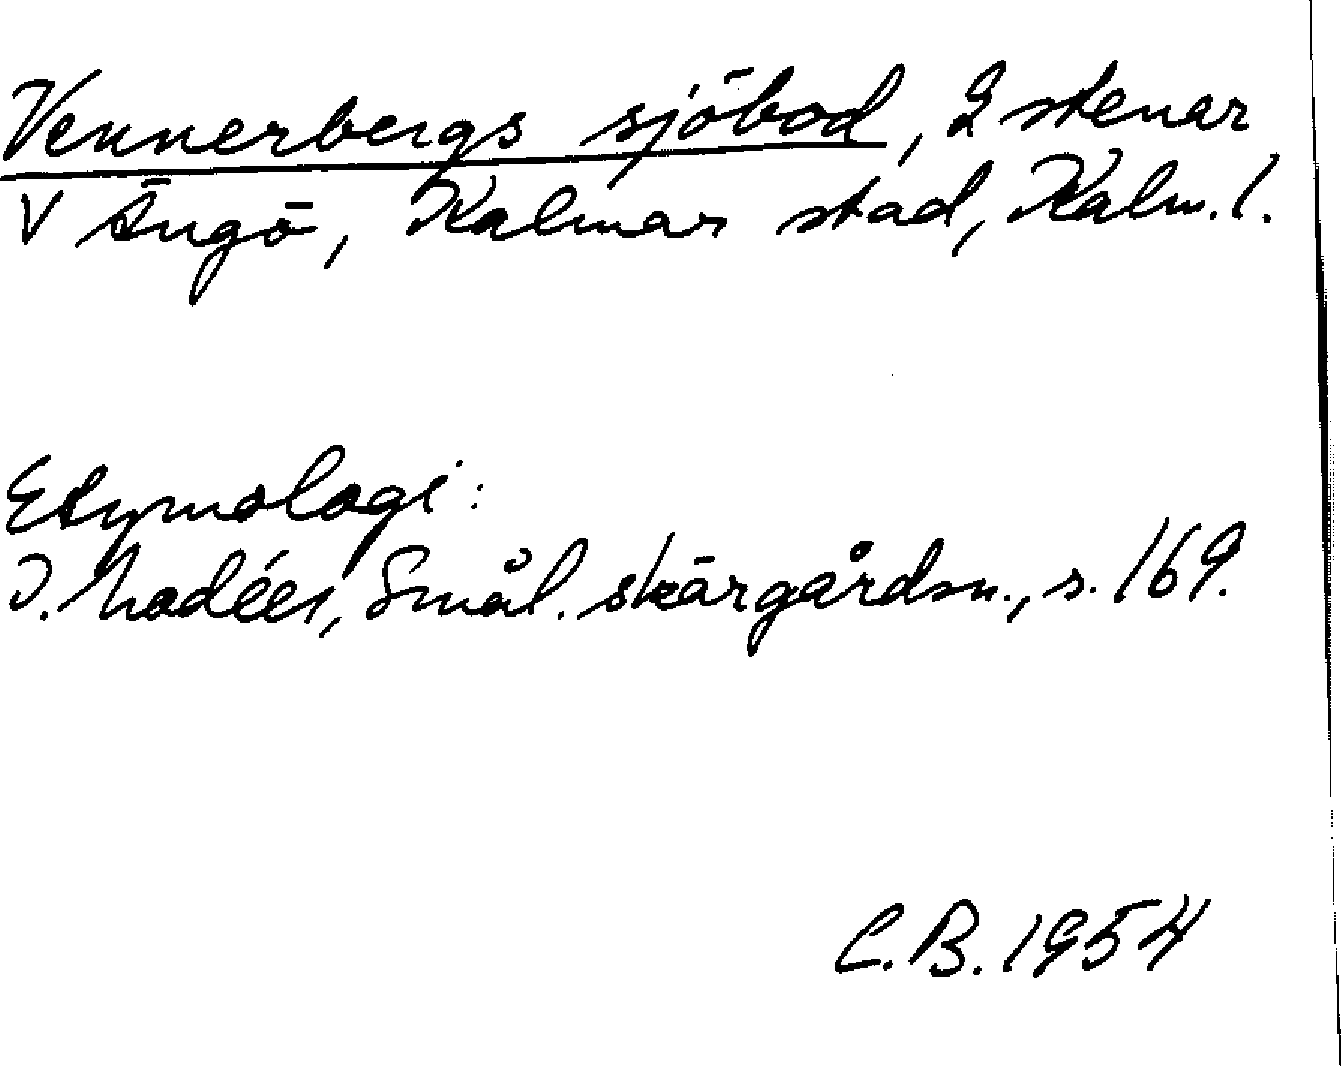 Vennerbergs sjöbod, 2 stenar
V Ängö, Kalmar stad, Kalm. l.
Etymologi:
I. Modéer, Smål. skärgårdsn., s. 169.
C.B. 1954